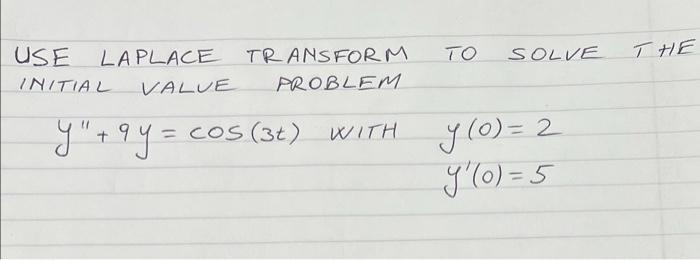 USE LAPLACE TRANSFORM TO SOLVE THE
INITIAL VALUE PROBLEM
y"+9y = cos(3t) WITH y(0)=2
y'(0)=5